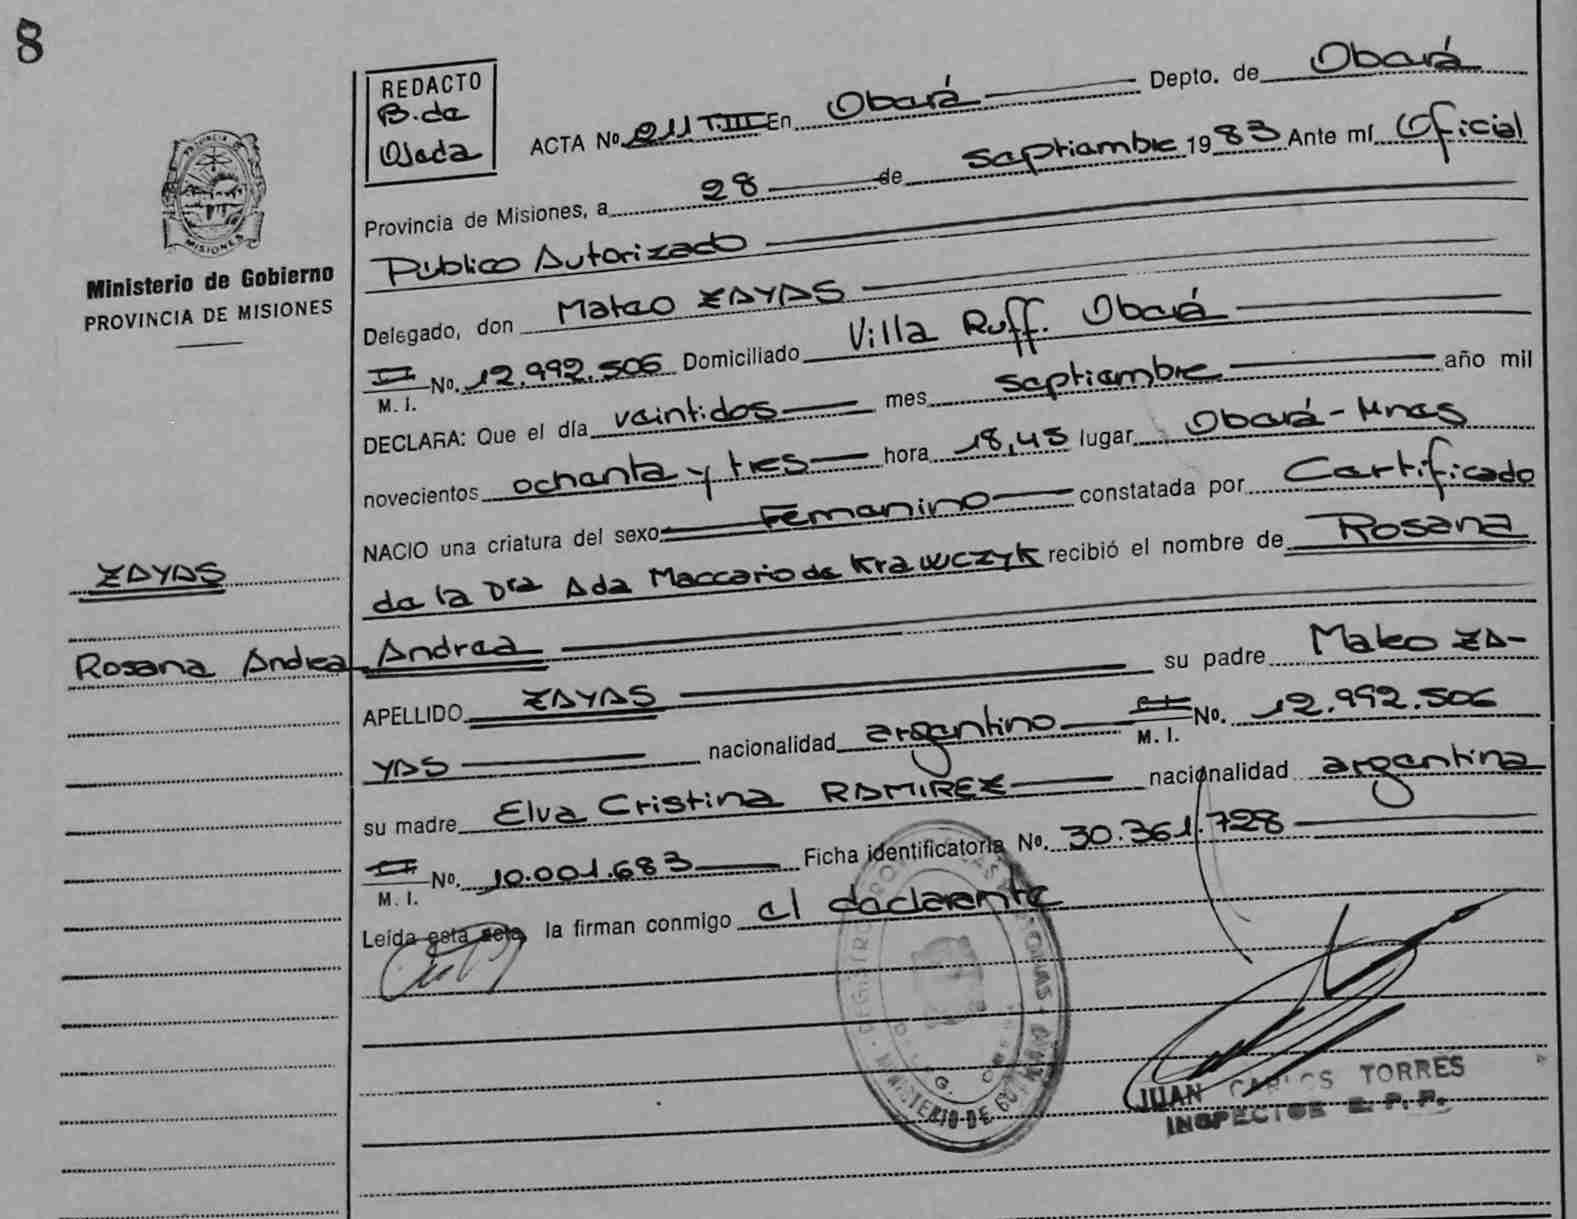 8
REDACTO
B. de
Ojeda
ACTA Nº 211 T.III En Oberá Depto. de Oberá
Provincia de Misiones, a 28 de septiembre 1983 Ante mí Oficial
Público Autorizado
PROVINCIA
MISIONES
Ministerio de Gobierno
PROVINCIA DE MISIONES
Delegado, don Mateo ZAYAS
M. I. No. 12.992.506 Domiciliado Villa Ruff. Oberá
DECLARA: Que el día veintidos mes septiembre año mil
novecientos ochenta y tres hora 18,45 lugar Oberá - Mnes
NACIO una criatura del sexo Femenino constatada por Certificado
de la Dra Ada Maccario de Krawczyk recibió el nombre de Rosana
Andrea
ZAYAS
Rosana Andrea
APELLIDO ZAYAS su padre Mateo ZA-
YAS nacionalidad argentino M. I. No. 12.992.506
su madre Elva Cristina RAMIREZ nacionalidad argentina
M. I. No. 10.001.683 Ficha identificatoria No. 30.361.728
Leída esta acta, la firman conmigo el declarante
MINISTERIO DE
JUAN CARLOS TORRES
INSPECTOR R. P. P.